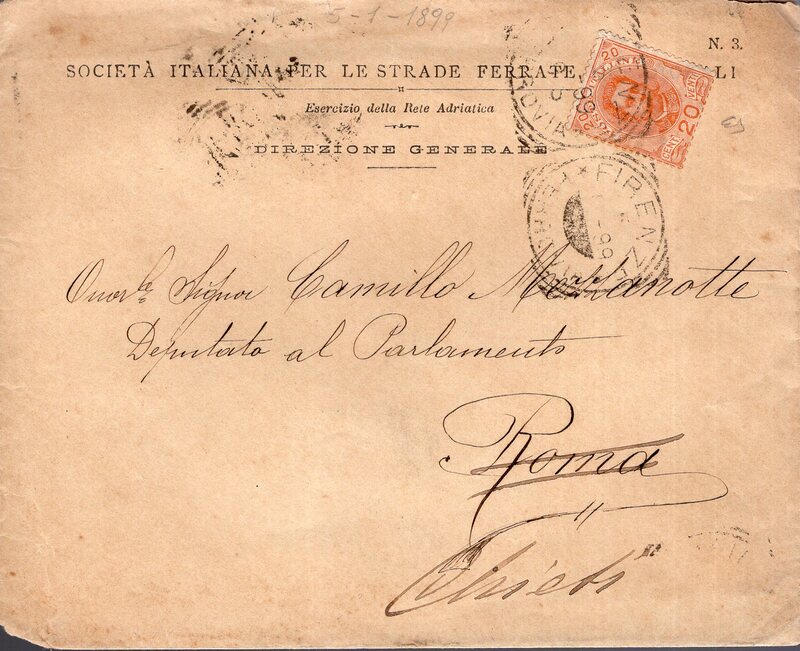 5-1-1899
N. 3.
SOCIETÀ ITALIANA PER LE STRADE FERRATE LI
Esercizio della Rete Adriatica
DIREZIONE GENERALE
20
CENT. 20 CENT
FIRENZE
FERROVIA
99
Onor.le Signor Camillo Mezzanotte
Deputato al Parlamento
Roma
Chieti